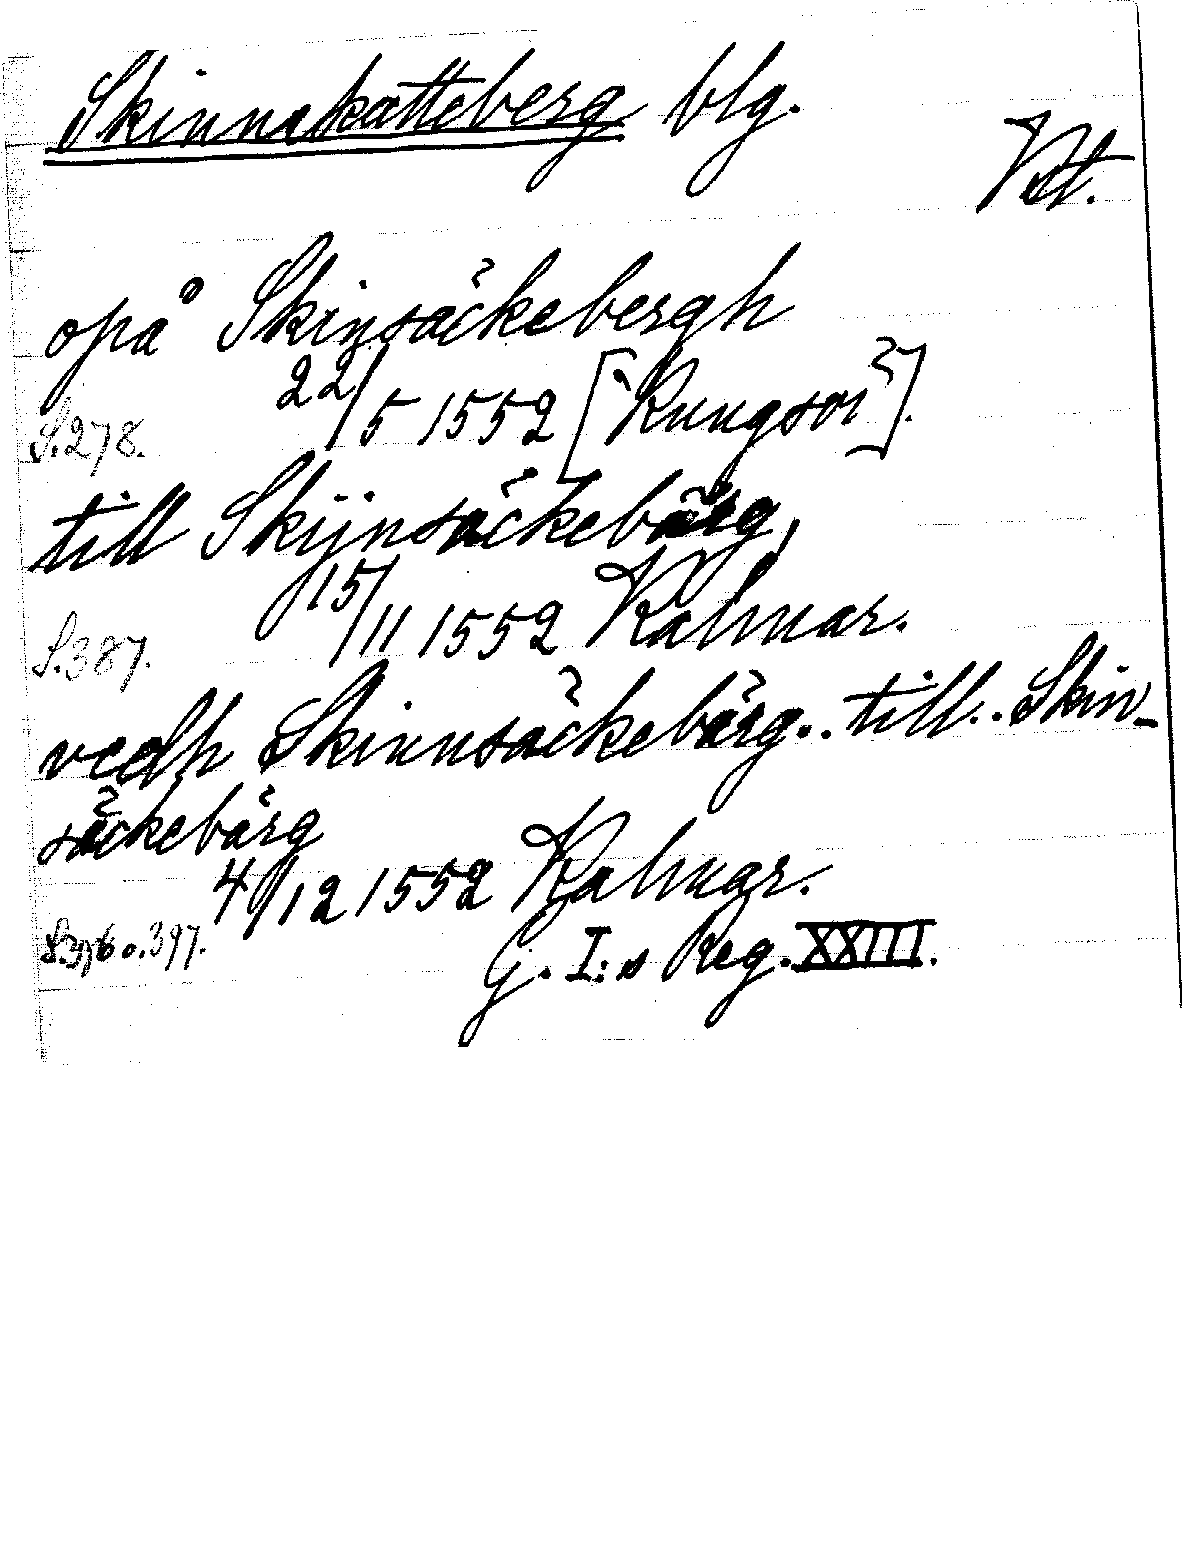 Skinnskatteberg blg.
Vst.
opå Skinsäckebergh
22/5 1552 [Kungsör].
S.278.
till Skijnsäckebärg,
15/11 1552 Kalmar.
S.387.
vedh Skinnsäckebärg.. till.. Skin-
säckebärg
4/12 1552 Kalmar.
S.396 o. 397.
G. I:s Reg. XXIII.